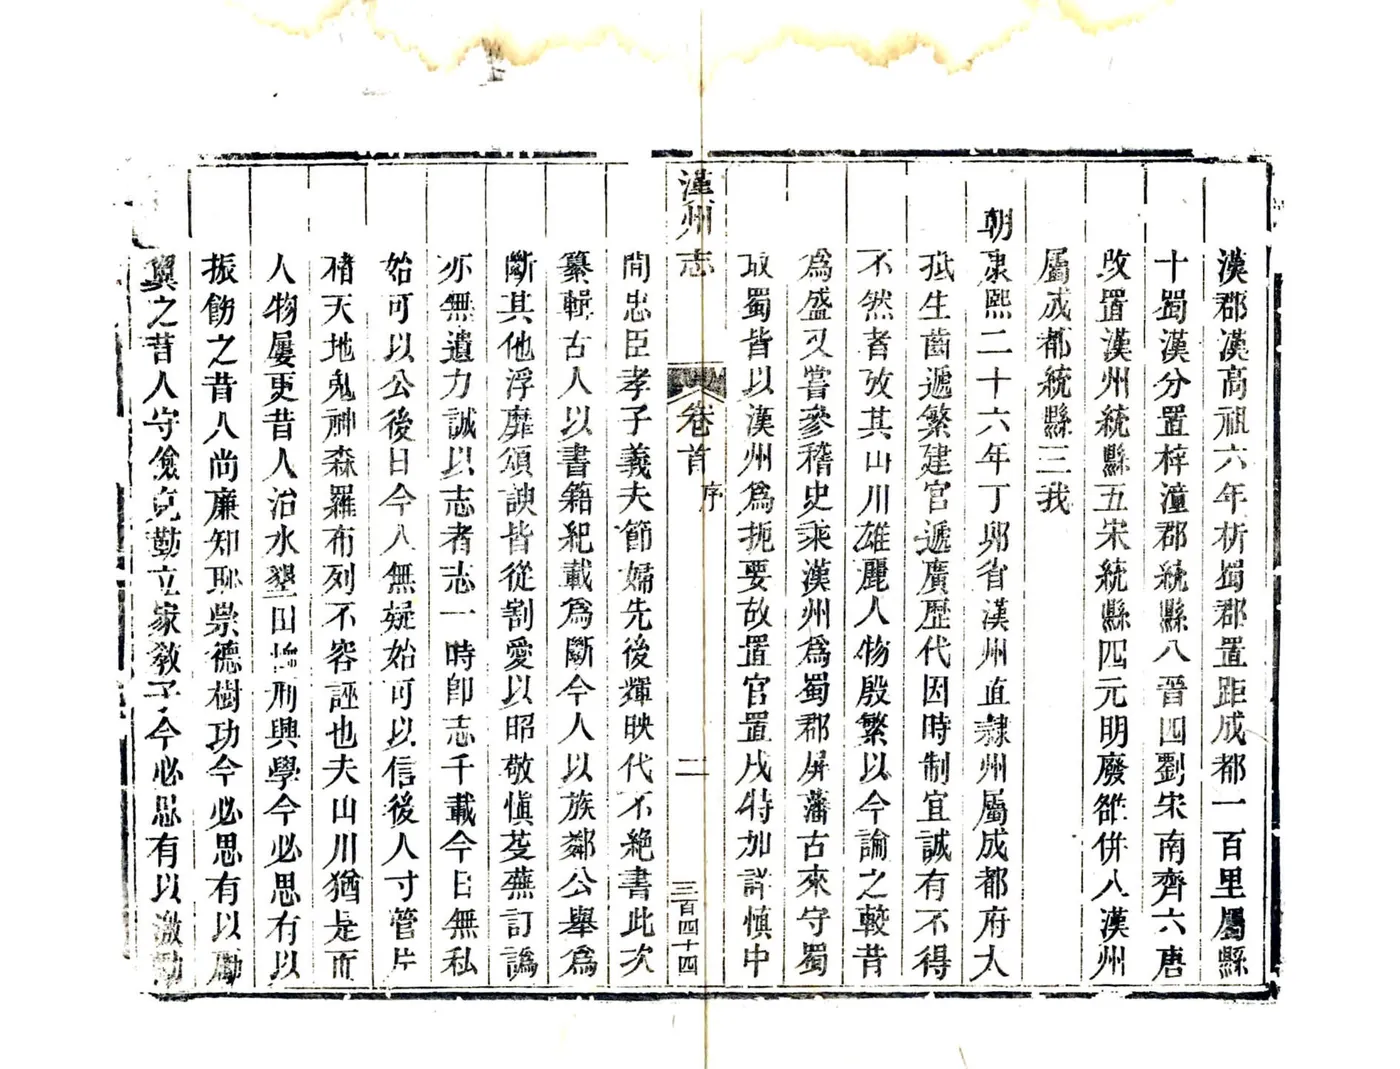 漢郡漢高祖六年析蜀郡置距成都一百里屬縣
十蜀漢分置梓潼郡統縣八晉四劉宋南齊六唐
改置漢州統縣五宋統縣四元明廢雒併入漢州
屬成都統縣三我
朝康熙二十六年丁卯省漢州直隸州屬成都府大
抵生齒遞繁建官遞廣歷代因時制宜誠有不得
不然者攷其山川雄麗人物殷繁以今論之較昔
爲盛又嘗參稽史乘漢州爲蜀郡屏藩古來守蜀
取蜀皆以漢州爲扼要故置官置戍特加詳慎中
漢州志
卷首
序
二
三百四十四
間忠臣孝子義夫節婦先後輝映代不絕書此次
纂輯古人以書籍紀載爲斷今人以族鄰公舉爲
斷其他浮靡頌諛皆從割愛以昭敬慎芟蕪訂譌
亦無遺力誠以志者志一時卽志千載今日無私
始可以公後日今人無疑始可以信後人寸管片
楮天地鬼神森羅布列不容誣也夫山川猶是而
人物屢更昔人治水墾田恤刑興學今必思有以
振飭之昔人尚廉知恥崇德樹功今必思有以勵
翼之昔人守儉克勤立家敎子今必思有以激勸